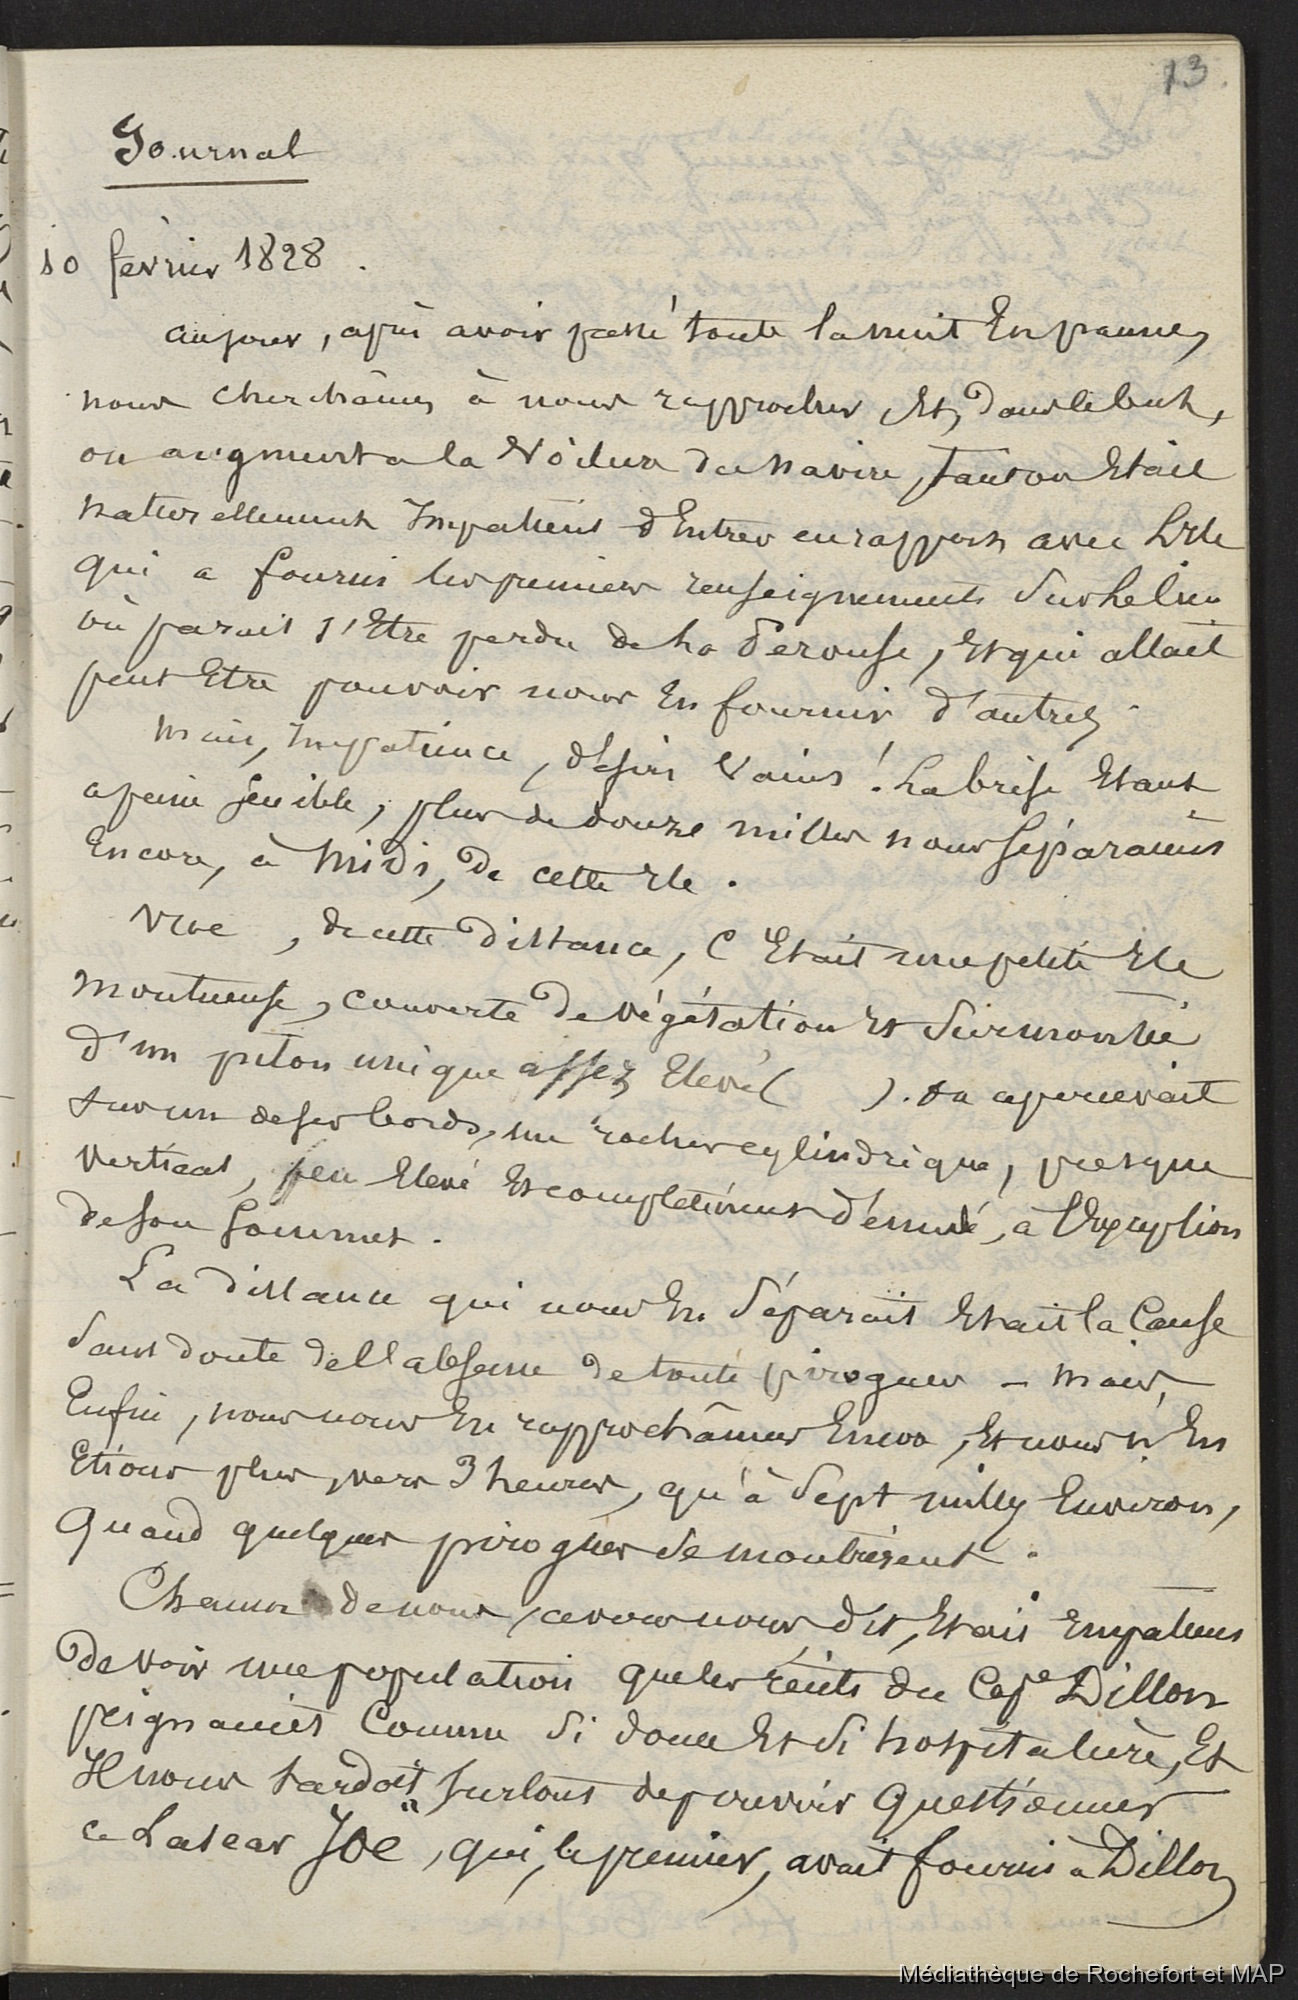 13
Journal
10 février 1828.
au jour, après avoir passé toute la nuit En panne,
nous cherchâmes à nous rapprocher, Et, dans le but,
on augmenta la Voilure du navire, tant on Etait
naturellement Impatient d'Entrer en rapport avec L'Ile
qui a fourni les premiers renseignements Sur le lieu
où parait s'Etre perdu de La Pérouse, Et qui allait
peut Etre pouvoir nous En fournir d'autres.
Mais, Impatience, désirs Vains! La brise Etant
a peine Sensible, plus de douze milles nous Séparaient
Encore, à Midi, de cette Ile.
Vue, de cette distance, C'Etait une petite Ile
montueuse, couverte de végétation Et Surmontée
d'un piton unique assez Elevé ( ). On apercevait
Sur un de ses bords, un rocher cylindrique, presque
vertical, peu Elevé Et complètement dénudé, à l'Exception
de Son Sommet.
La distance qui nous En Séparait Etait la Cause
Sans doute de l'absence de toute pirogues - Mais,
Enfin, nous nous En rapprochâmes Encore, Et nous n'En
Etions plus, vers 3 heures, qu'à Sept milles Environ,
Quand quelques pirogues Se montrèrent.
Chacun de nous, avons nous dit, Etait Impatient
De voir une population que les récits du Cape Dillon
peignaient Comme Si douce Et Si hospitalière, Et
Il nous tardait Surtout de pouvoir Questionner
ce Lascar Joe, qui, le premier, avait fourni à Dillon
Médiathèque de Rochefort et MAP